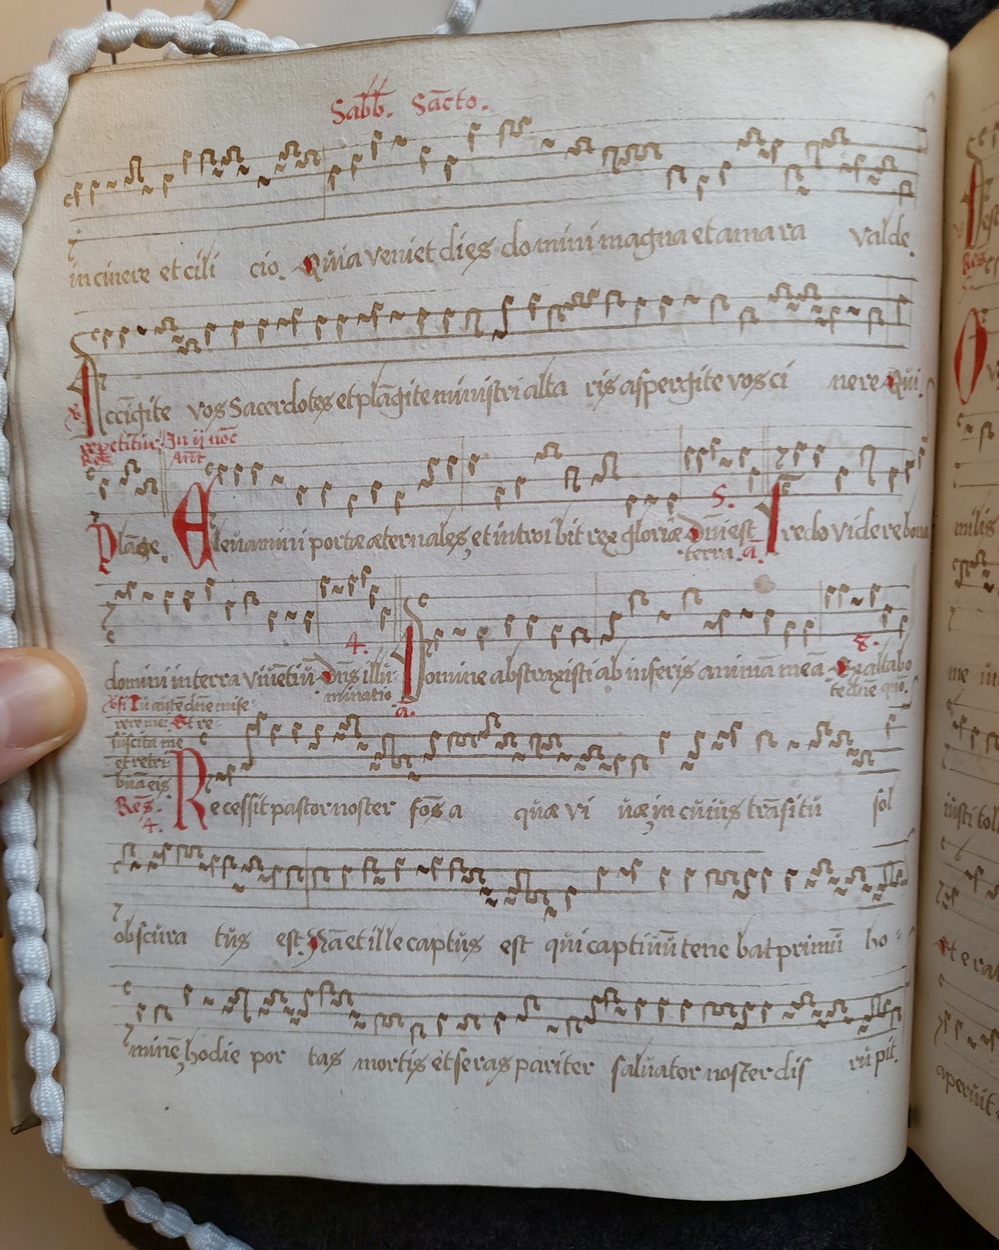 Sabb. Sācto.
in cinere et cili cio. Quia veniet dies domini magna et amara valde.
Accīgite vos Sacerdotes et plāgite ministri alta ris aspergite vos ci nere Qui.
repetitur In ij noc
Res. Anť
Plāge. Eleuamini portæ æternales, et introibit rex gloriæ Dn̄i est
terra. a. 5. Credo videre bona
domini in terra viuētiū Dn̄s illu
minatio 4. Domine abstraxisti ab inferis animā meā Exaltabo
te dn̄e quō. 8.
Tu autē dn̄e mise
rere mei Et re
suscita me
et retri
buā eis
Res.
4.
Recessit pastor noster fōs a quæ vi uæ, in cuius trāsitu sol
obscura tus est. Nā et ille captus est qui captiuū tene bat primū ho
minē, hodie por tas mortis et seras pariter saluator noster dis ru pit.